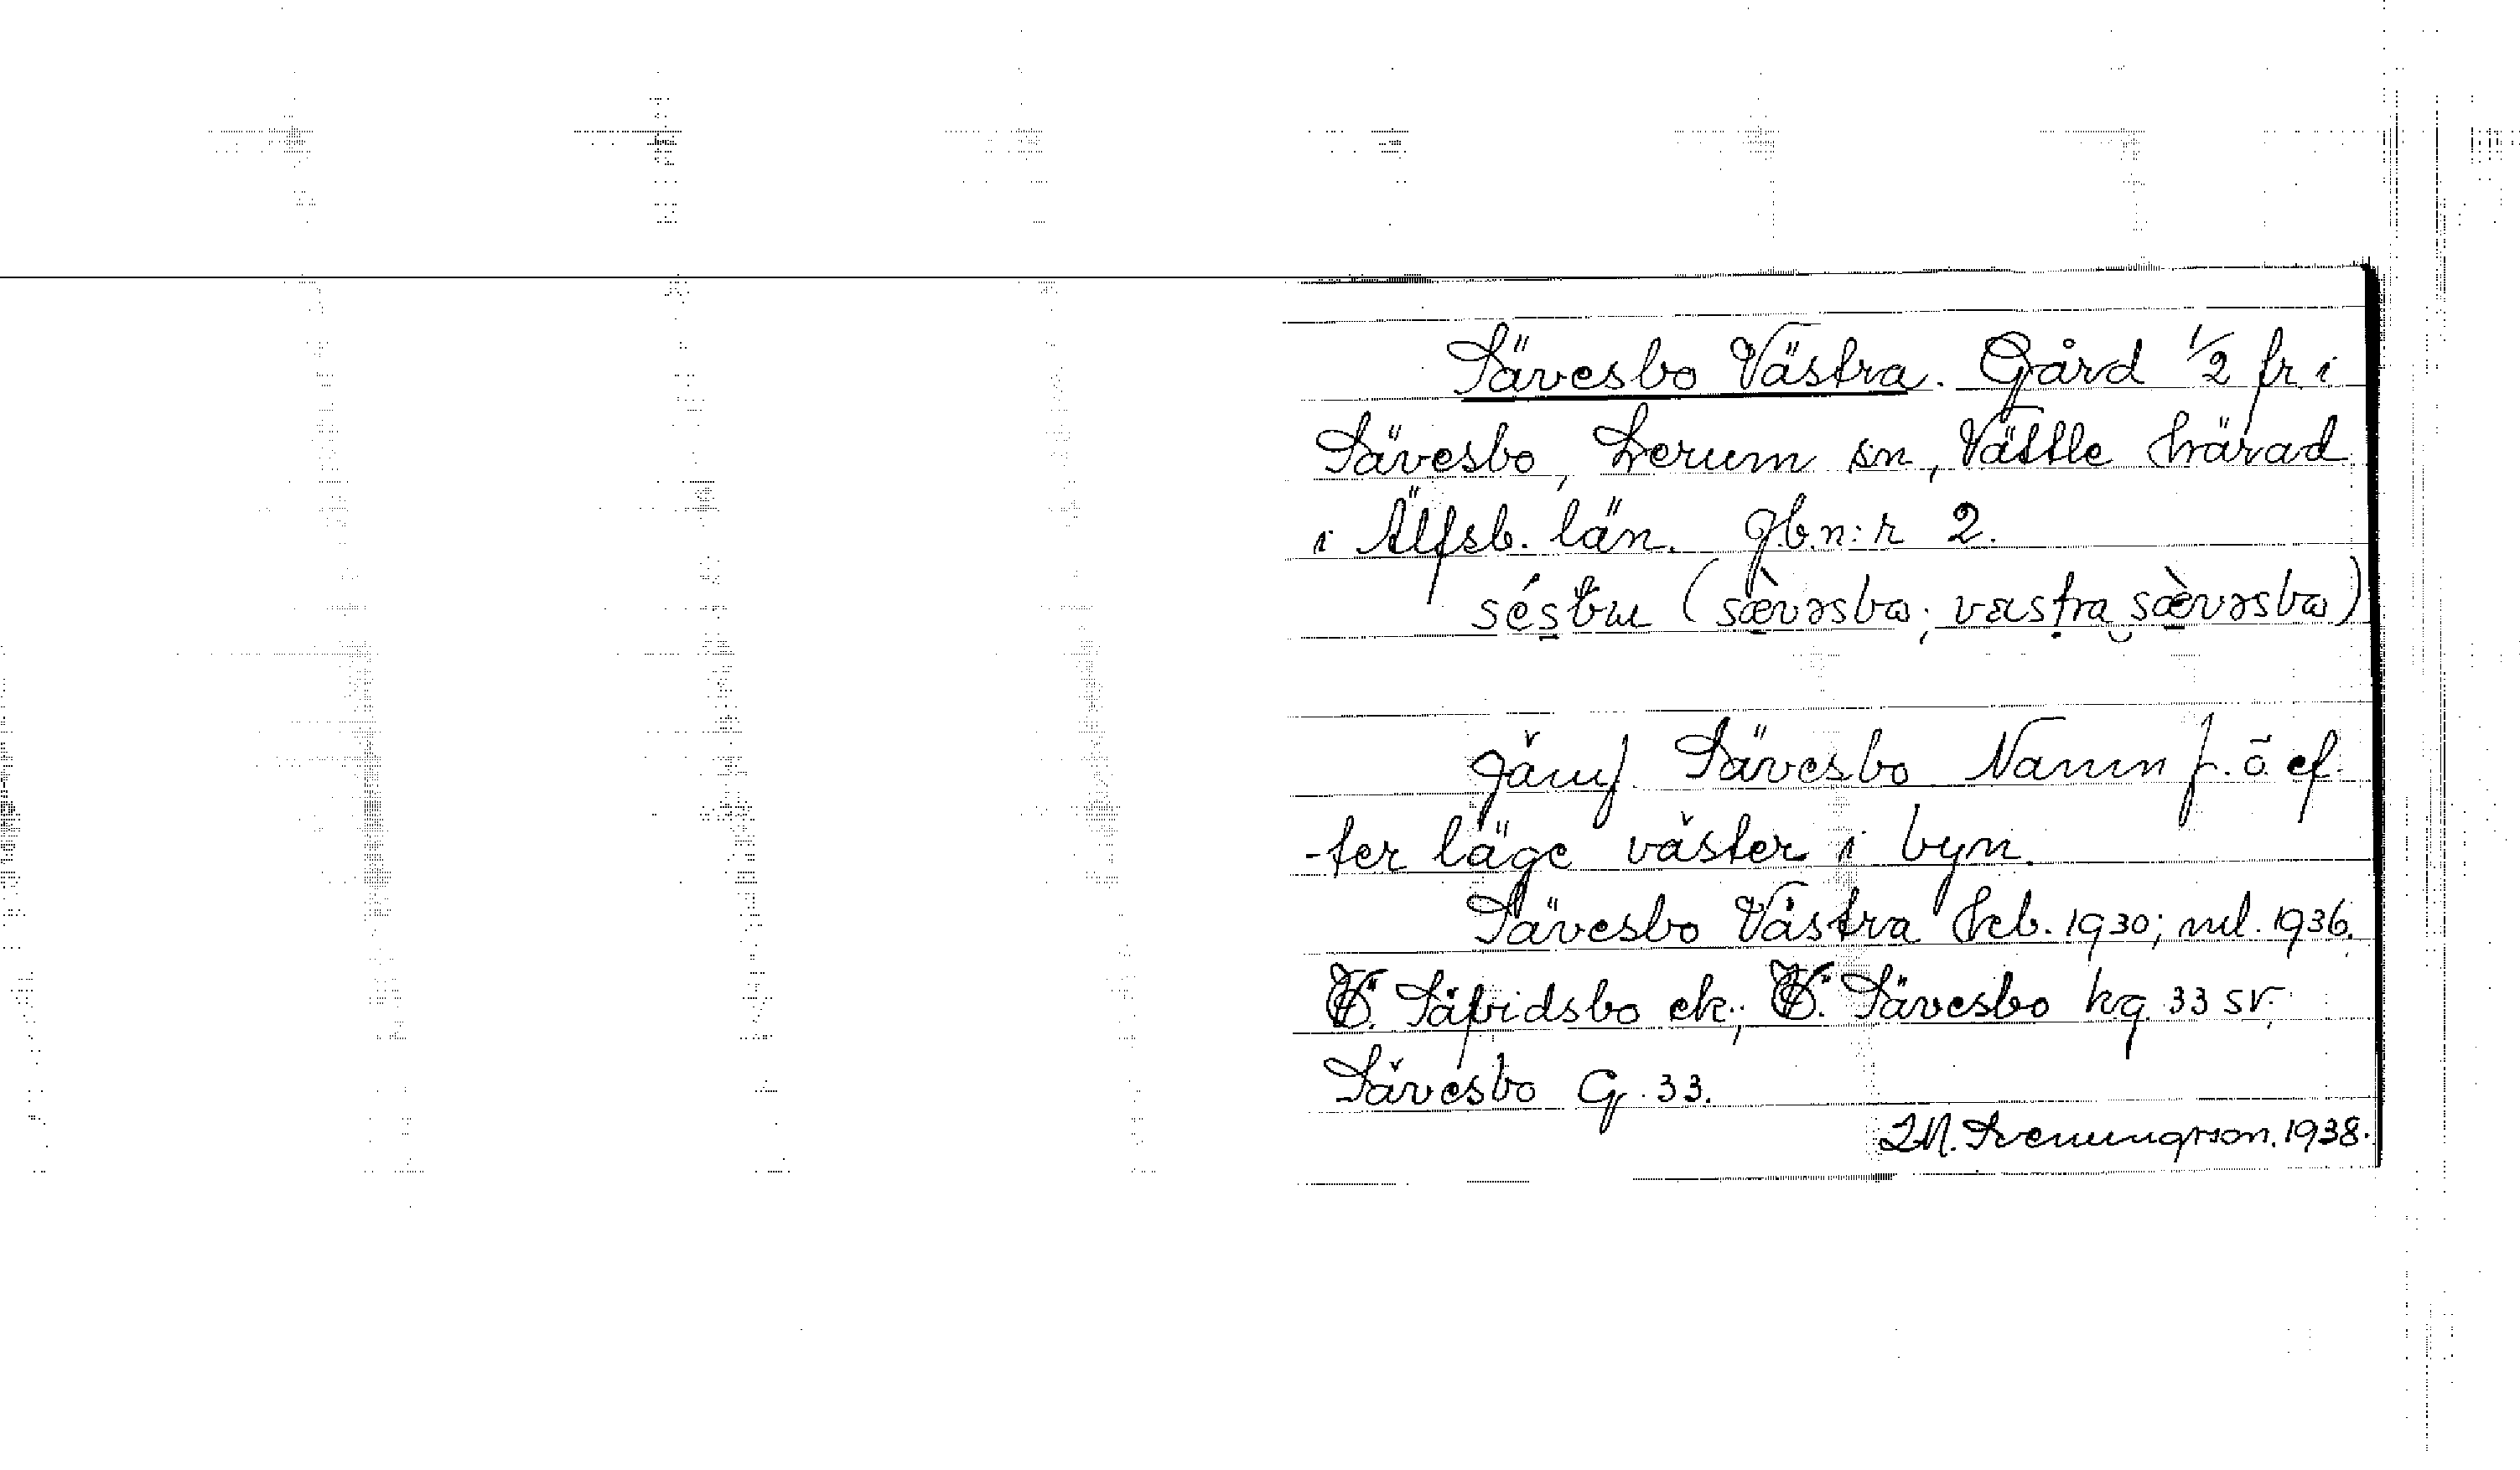 Sävesbo Västra. Gård 1/2 fr. i
Sävesbo, Lerum sn, Vättle härad
i Älfsb. län. Jb.n:r 2.
(sævəsbo; væstra sævəsbo)
Jämf. Sävesbo Namn f. ö ef-
-ter läge väster i byn.
Sävesbo Västra Jeb. 1930; ml. 1936.
V. Säfvidsbo ek.; V. Sävesbo kg 33 sv.
Sävesbo G. 33.
1938.